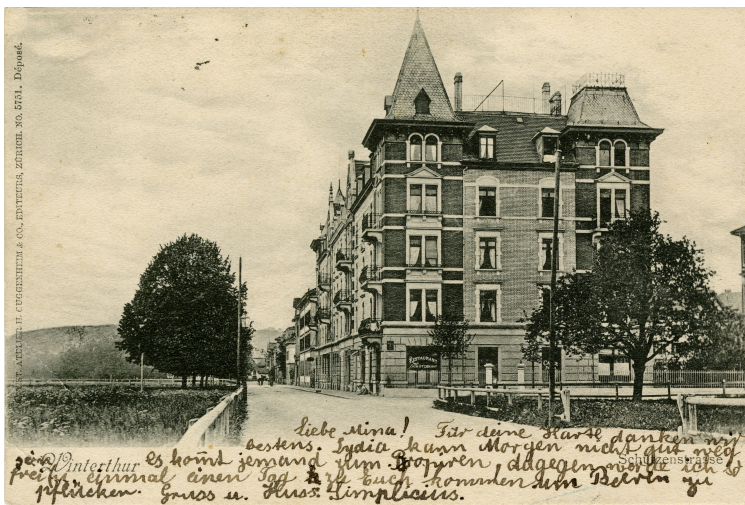 ATELIER H. GUGGENHEIM & CO., EDITEURS, ZÜRICH. NO. 5751. Déposé.
RESTAURANT
Liebe Mina! Für deine Karte danken wir
bestens. Lydia kann Morgen nicht gut weg
Winterthur es kom̄t jemand zum Probiren, dagegen werde ich
Schützenstrasse
einmal einen Tag zu Euch kommen um Beeren zu
pflücken. Gruss u. Kuss. Simplicius.